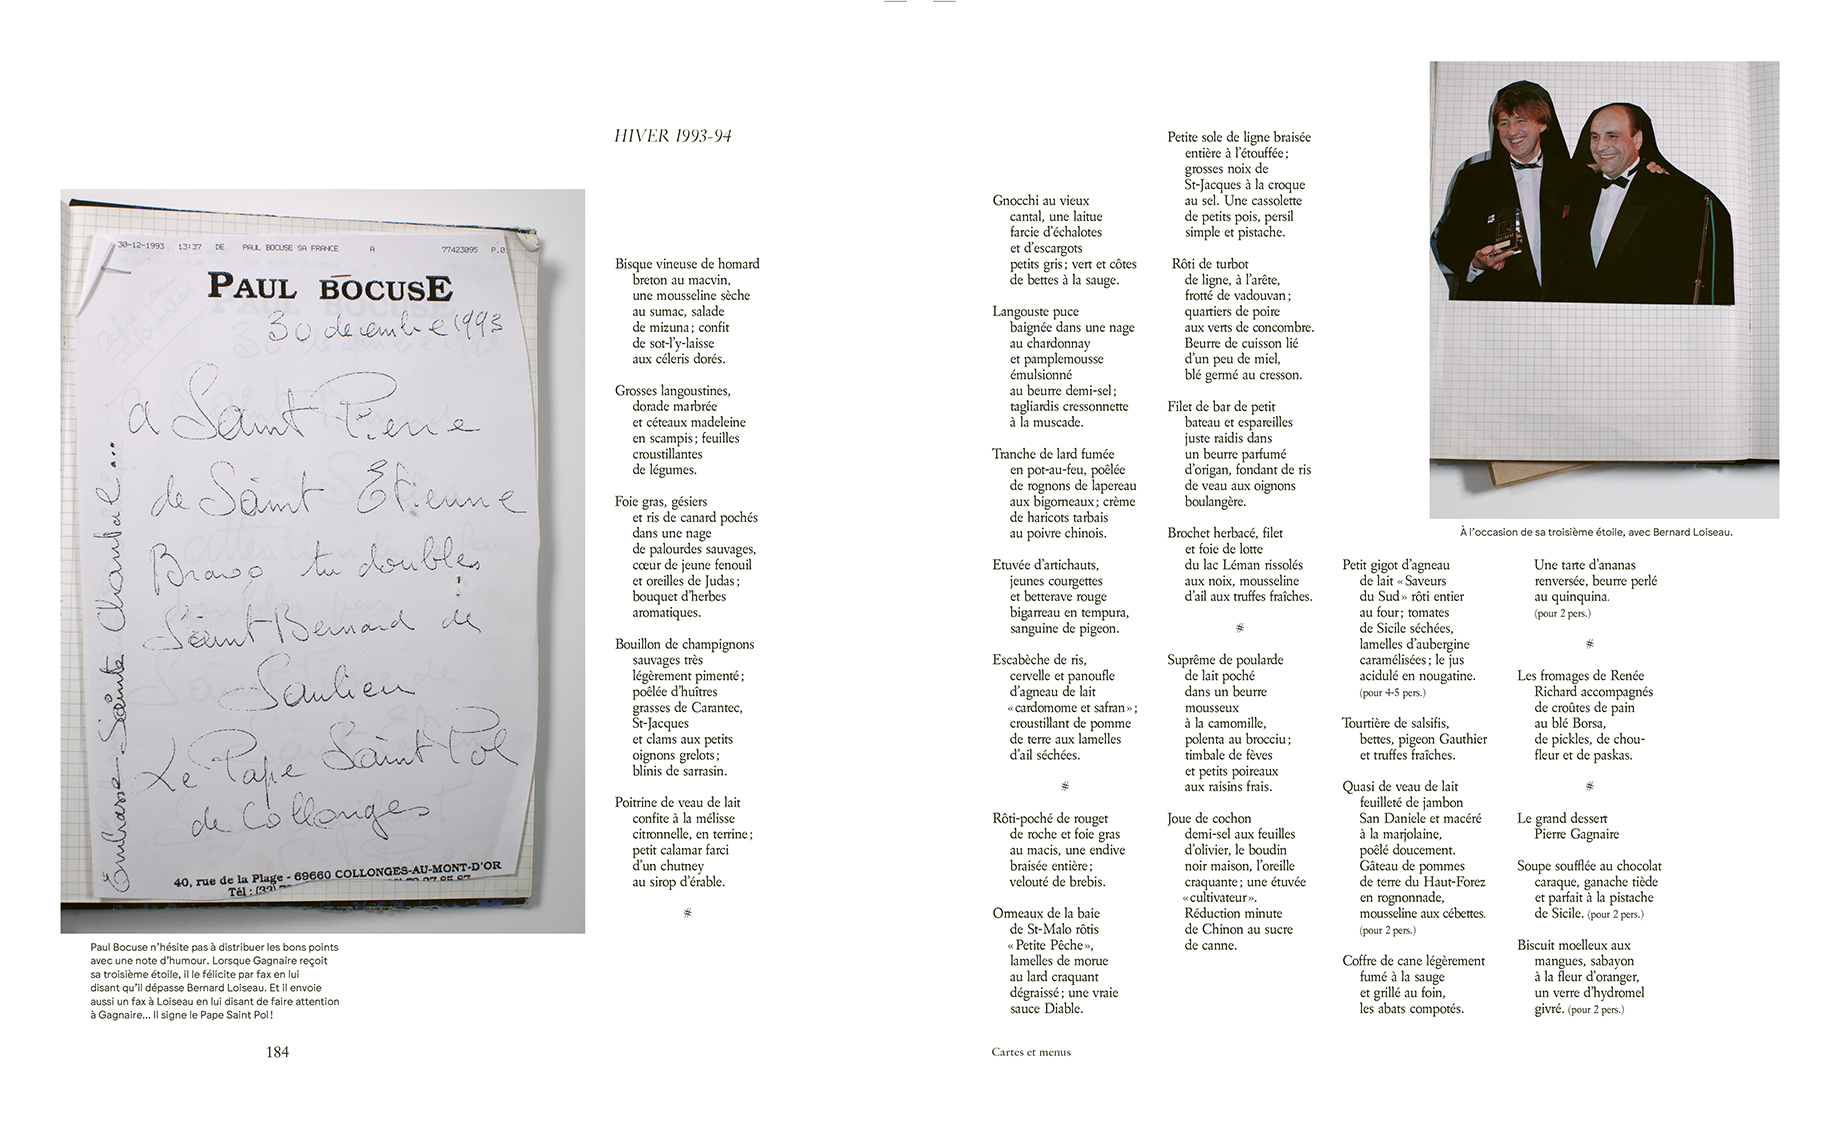 30-12-1993 13:37 DE PAUL BOCUSE SA FRANCE A 77423095 P.0
PAUL BOCUSE
30 decembre 1993
a Saint Pierre
de Saint Etienne
Bravo tu doubles
Saint Bernard de
Saulieu
Le Pape Saint Pol
de Collonges
Embrasse Sainte Chantal...
40, rue de la Plage - 69660 COLLONGES-AU-MONT-D'OR
Tél : (33)
Paul Bocuse n'hésite pas à distribuer les bons points
avec une note d'humour. Lorsque Gagnaire reçoit
sa troisième étoile, il le félicite par fax en lui
disant qu'il dépasse Bernard Loiseau. Et il envoie
aussi un fax à Loiseau en lui disant de faire attention
à Gagnaire... Il signe le Pape Saint Pol !
184
HIVER 1993-94
Bisque vineuse de homard
breton au macvin,
une mousseline sèche
au sumac, salade
de mizuna ; confit
de sot-l'y-laisse
aux céleris dorés.
Grosses langoustines,
dorade marbrée
et céteaux madeleine
en scampis ; feuilles
croustillantes
de légumes.
Foie gras, gésiers
et ris de canard pochés
dans une nage
de palourdes sauvages,
cœur de jeune fenouil
et oreilles de Judas ;
bouquet d'herbes
aromatiques.
Bouillon de champignons
sauvages très
légèrement pimenté ;
poêlée d'huîtres
grasses de Carantec,
St-Jacques
et clams aux petits
oignons grelots ;
blinis de sarrasin.
Poitrine de veau de lait
confite à la mélisse
citronnelle, en terrine ;
petit calamar farci
d'un chutney
au sirop d'érable.
#
Gnocchi au vieux
cantal, une laitue
farcie d'échalotes
et d'escargots
petits gris ; vert et côtes
de bettes à la sauge.
Langouste puce
baignée dans une nage
au chardonnay
et pamplemousse
émulsionné
au beurre demi-sel ;
tagliardis cressonnette
à la muscade.
Tranche de lard fumée
en pot-au-feu, poêlée
de rognons de lapereau
aux bigorneaux ; crème
de haricots tarbais
au poivre chinois.
Etuvée d'artichauts,
jeunes courgettes
et betterave rouge
bigarreau en tempura,
sanguine de pigeon.
Escabèche de ris,
cervelle et panoufle
d'agneau de lait
« cardomome et safran » ;
croustillant de pomme
de terre aux lamelles
d'ail séchées.
#
Rôti-poché de rouget
de roche et foie gras
au macis, une endive
braisée entière ;
velouté de brebis.
Ormeaux de la baie
de St-Malo rôtis
« Petite Pêche »,
lamelles de morue
au lard craquant
dégraissé ; une vraie
sauce Diable.
Petite sole de ligne braisée
entière à l'étouffée ;
grosses noix de
St-Jacques à la croque
au sel. Une cassolette
de petits pois, persil
simple et pistache.
Rôti de turbot
de ligne, à l'arête,
frotté de vadouvan ;
quartiers de poire
aux verts de concombre.
Beurre de cuisson lié
d'un peu de miel,
blé germé au cresson.
Filet de bar de petit
bateau et espareilles
juste raidis dans
un beurre parfumé
d'origan, fondant de ris
de veau aux oignons
boulangère.
Brochet herbacé, filet
et foie de lotte
du lac Léman rissolés
aux noix, mousseline
d'ail aux truffes fraîches.
#
Suprême de poularde
de lait poché
dans un beurre
mousseux
à la camomille,
polenta au brocciu ;
timbale de fèves
et petits poireaux
aux raisins frais.
Joue de cochon
demi-sel aux feuilles
d'olivier, le boudin
noir maison, l'oreille
craquante ; une étuvée
« cultivateur ».
Réduction minute
de Chinon au sucre
de canne.
À l'occasion de sa troisième étoile, avec Bernard Loiseau.
Petit gigot d'agneau
de lait « Saveurs
du Sud » rôti entier
au four ; tomates
de Sicile séchées,
lamelles d'aubergine
caramélisées ; le jus
acidulé en nougatine.
(pour 4-5 pers.)
Tourtière de salsifis,
bettes, pigeon Gauthier
et truffes fraîches.
Quasi de veau de lait
feuilleté de jambon
San Daniele et macéré
à la marjolaine,
poêlé doucement.
Gâteau de pommes
de terre du Haut-Forez
en rognonnade,
mousseline aux cébettes.
(pour 2 pers.)
Coffre de cane légèrement
fumé à la sauge
et grillé au foin,
les abats compotés.
Une tarte d'ananas
renversée, beurre perlé
au quinquina.
(pour 2 pers.)
#
Les fromages de Renée
Richard accompagnés
de croûtes de pain
au blé Borsa,
de pickles, de chou-
fleur et de paskas.
#
Le grand dessert
Pierre Gagnaire
Soupe soufflée au chocolat
caraque, ganache tiède
et parfait à la pistache
de Sicile. (pour 2 pers.)
Biscuit moelleux aux
mangues, sabayon
à la fleur d'oranger,
un verre d'hydromel
givré. (pour 2 pers.)
Cartes et menus